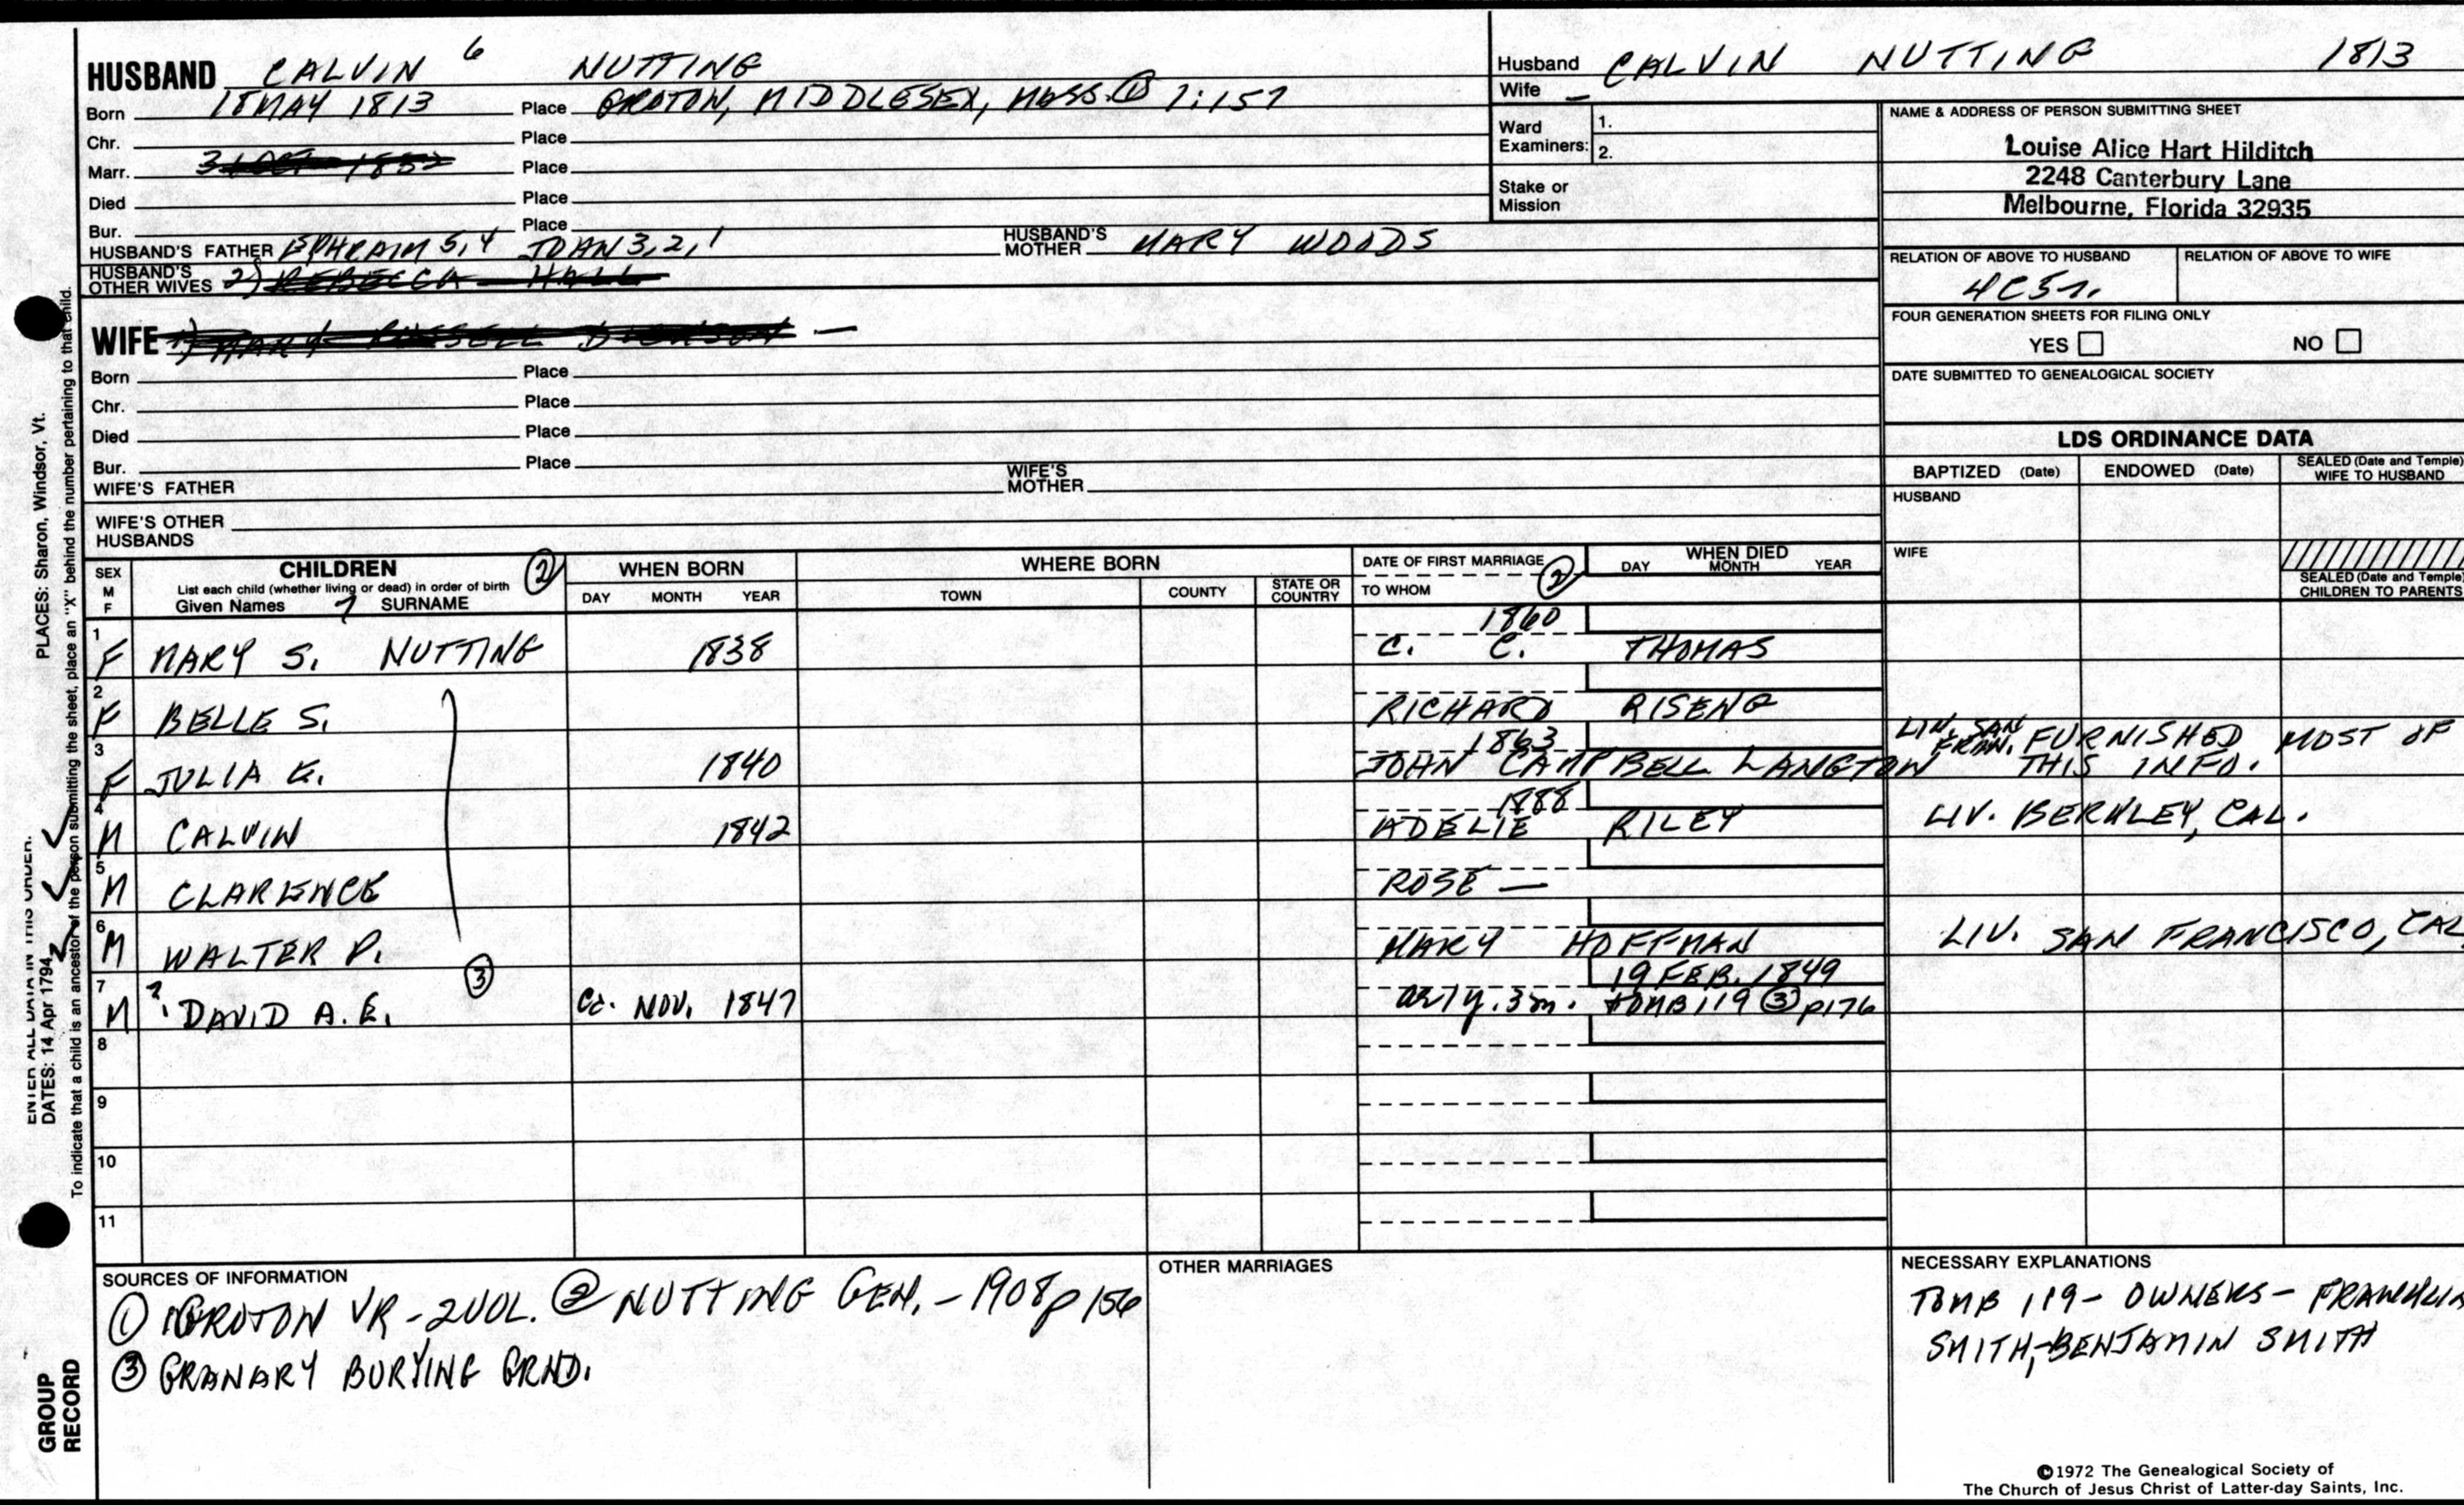 HUSBAND CALVIN 6 NUTTING
Born 18 MAY 1813 Place GROTON, MIDDLESEX, MASS. ① 1:157
Chr. Place
Marr. Place
Died Place
Bur. Place
HUSBAND'S FATHER EPHRAIM 5,4 JOHN 3,2,1 HUSBAND'S MOTHER MARY WOODS
HUSBAND'S OTHER WIVES 2) REBECCA HALL
WIFE 1) MARY —
Born Place
Chr. Place
Died Place
Bur. Place
WIFE'S FATHER WIFE'S MOTHER
WIFE'S OTHER HUSBANDS
Husband CALVIN NUTTING 1813
Wife –
Ward Examiners: 1.
2.
Stake or Mission
NAME & ADDRESS OF PERSON SUBMITTING SHEET
Louise Alice Hart Hilditch
2248 Canterbury Lane
Melbourne, Florida 32935
RELATION OF ABOVE TO HUSBAND RELATION OF ABOVE TO WIFE
4C5r.
FOUR GENERATION SHEETS FOR FILING ONLY
YES NO
DATE SUBMITTED TO GENEALOGICAL SOCIETY
LDS ORDINANCE DATA
BAPTIZED (Date) ENDOWED (Date) SEALED (Date and Temple) WIFE TO HUSBAND
HUSBAND
WIFE
SEALED (Date and Temple) CHILDREN TO PARENTS
SEX M F CHILDREN ② WHEN BORN WHERE BORN DATE OF FIRST MARRIAGE ② WHEN DIED
List each child (whether living or dead) in order of birth
Given Names 7 SURNAME DAY MONTH YEAR TOWN COUNTY STATE OR COUNTRY TO WHOM DAY MONTH YEAR
1 1860
F MARY S. NUTTING 1838 C. C. THOMAS
2
F BELLE S. RICHARD RISENG
3 1863
F JULIA E. 1840 JOHN CAMPBELL LANGTON LIV. SAN FRAN. FURNISHED MOST OF THIS INFO.
4 1888
M CALVIN 1842 ADELIE RILEY LIV. BERKLEY, CAL.
5
M CLARENCE ROSE —
6
M WALTER P. MARY HOFFMAN LIV. SAN FRANCISCO, CAL
7 ③ 19 FEB. 1849
M ? DAVID A. E. Ca. NOV. 1847 ae 1y. 3m. TOMB 119 ③ p176
8
9
10
11
SOURCES OF INFORMATION
① GROTON VR - 2 VOL. ② NUTTING GEN. - 1908 p 156
③ GRANARY BURYING GRND.
OTHER MARRIAGES
NECESSARY EXPLANATIONS
TOMB 119 - OWNERS - FRANKLIN
SMITH, - BENJAMIN SMITH
©1972 The Genealogical Society of
The Church of Jesus Christ of Latter-day Saints, Inc.
ENTER ALL DATA IN THIS ORDER.
DATES: 14 Apr 1794
PLACES: Sharon, Windsor, Vt.
To indicate that a child is an ancestor of the person submitting the sheet, place an "X" behind the number pertaining to that child.
GROUP RECORD